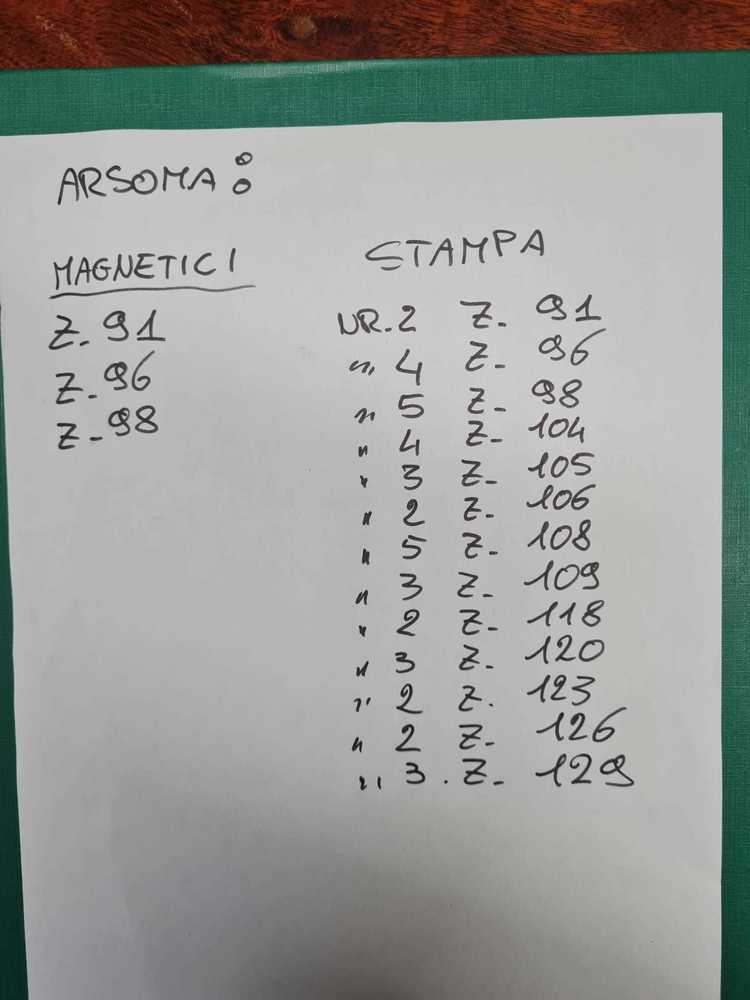 ARSOMA:
MAGNETICI
Z. 91
Z. 96
Z - 98
STAMPA
NR. 2 Z. 91
" 4 Z - 96
" 5 Z - 98
" 4 Z - 104
" 3 Z - 105
" 2 Z - 106
" 5 Z - 108
" 3 Z - 109
" 2 Z - 118
" 3 Z - 120
" 2 Z. 123
" 2 Z - 126
" 3 . Z - 129